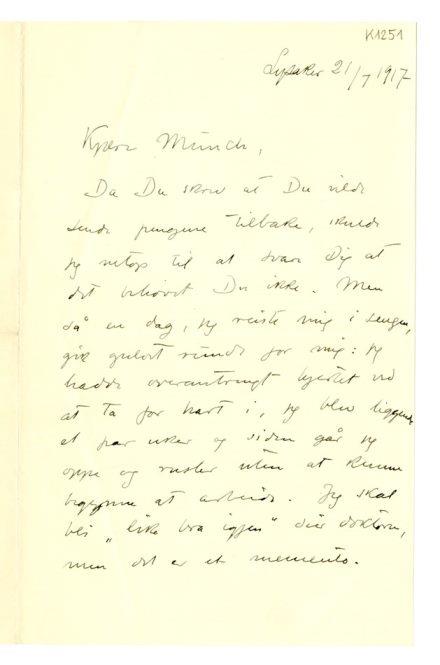 K1251
Lysaker 21/7 1917
Kjære Munch,
Da Du skrev at Du vilde
sende pengene tilbake, skulde
jeg netop til at svare Dig at
det behøvet Du ikke. Men
så en dag, jeg reiste mig i sengen,
gik gulvet rundt for mig: jeg
hadde overanstrengt hjertet ved
at ta for hart i, jeg blev liggende
et par uker og siden går jeg
oppe og rusler uten at kunne
begynne at arbeide. Jeg skal
bli "like bra igjen" sier doktoren,
men det er et memento.